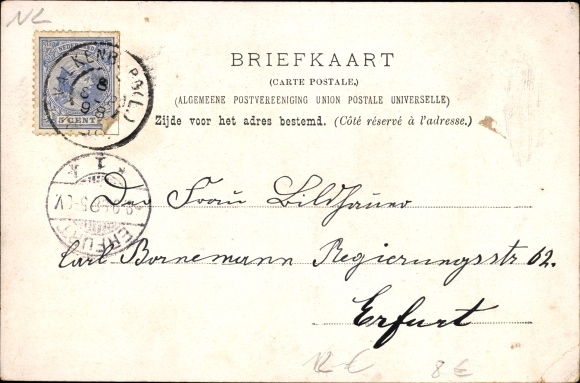 NL
NEDERLAND
5 CENT
VALKENBURG (L.)
BRIEFKAART
(CARTE POSTALE.)
(ALGEMEENE POSTVEREENIGING UNION POSTALE UNIVERSELLE)
Zijde voor het adres bestemd. (Côté réservé à l'adresse.)
* 1 k
ERFURT
Der Frau Bildhauer
Carl Bornemann Regierungsstr 62.
Erfurt
12 €
8 €